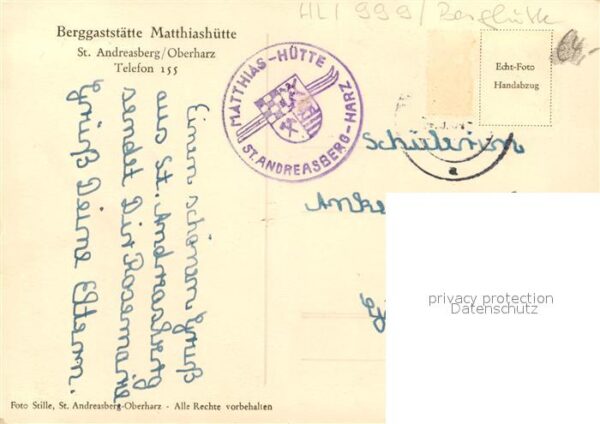 Berggaststätte Matthiashütte
St. Andreasberg/Oberharz
Telefon 155
HLI 999/Berghütte
64,-
MATTHIAS-HÜTTE
ST. ANDREASBERG-HARZ
Echt-Foto
Handabzug
Schülerin
Anke
Einen schönen Gruß
aus St. Andreasberg
sendet Dir Rosemarie
Grüß Deine Eltern.
privacy protection
Datenschutz
Foto Stille, St. Andreasberg-Oberharz - Alle Rechte vorbehalten